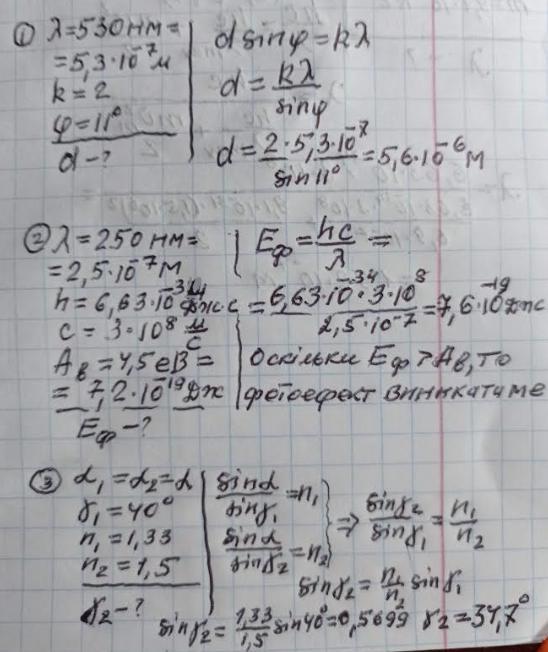 ① λ=530нм=
=5,3·10⁻⁷м
k=2
φ=11°
d-?
d sinφ=kλ
d=kλ/sinφ
d=2·5,3·10⁻⁷/sin11°=5,6·10⁻⁶м
② λ=250нм=
=2,5·10⁻⁷м
h=6,63·10⁻³⁴Дж·с
c=3·10⁸ м/с
Aв=4,5еВ=
=7,2·10⁻¹⁹Дж
Eф-?
Eф=hc/λ=
=6,63·10⁻³⁴·3·10⁸/2,5·10⁻⁷=7,6·10⁻¹⁹Дж
Оскільки Eф>Aв, то
фотоефект виникатиме
③ α₁=α₂=α
γ₁=40°
n₁=1,33
n₂=1,5
γ₂-?
sinα/sinγ₁=n₁
sinα/sinγ₂=n₂
⇒ sinγ₂/sinγ₁=n₁/n₂
sinγ₂=n₁/n₂ sinγ₁
sinγ₂=1,33/1,5 sin40°=0,5699 γ₂=34,7°